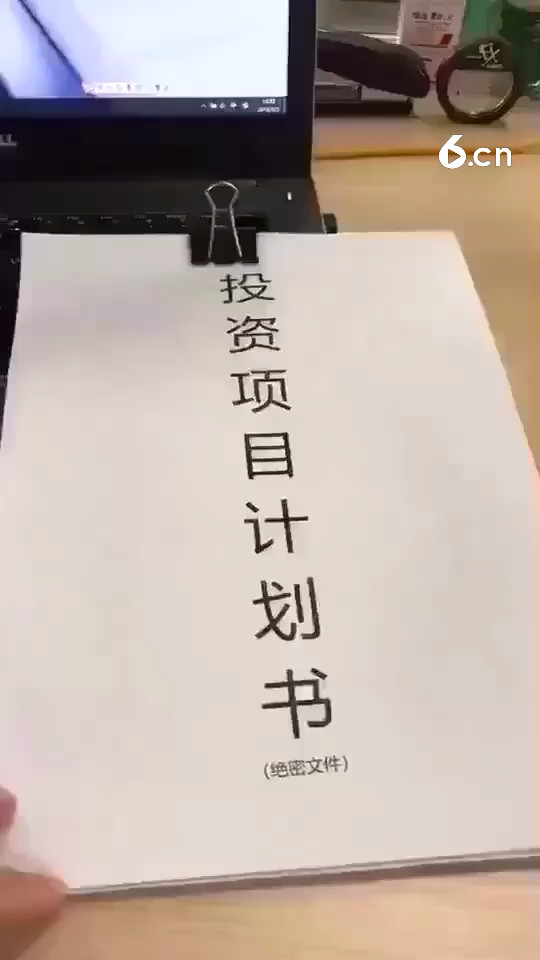 6.cn
投
资
项
目
计
划
书
(绝密文件)